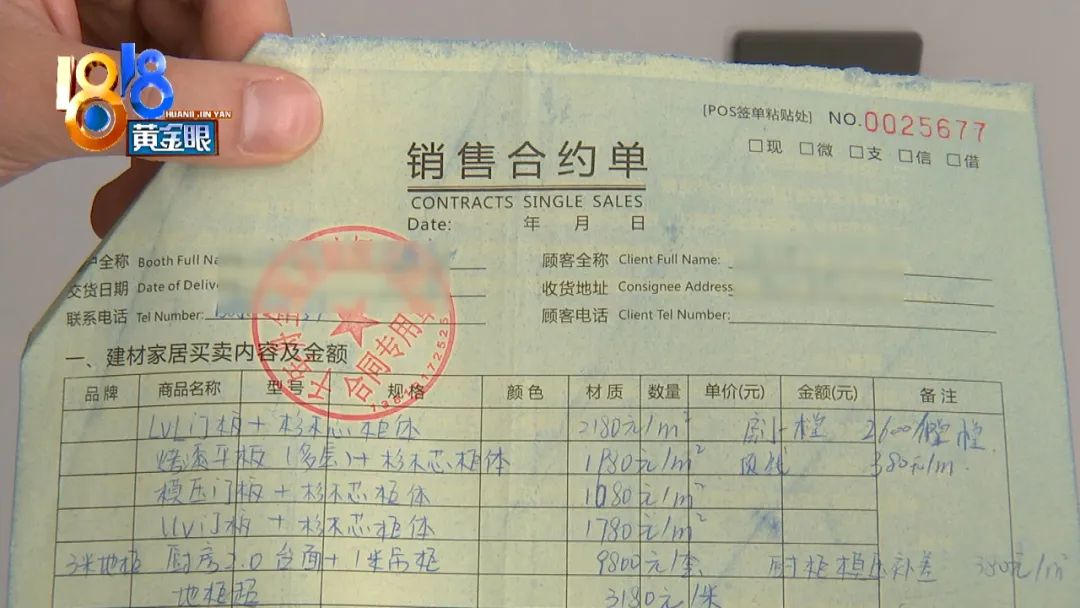 1818
HUANG JIN YAN
黄金眼
[POS签单粘贴处] NO.0025677
□现 □微 □支 □信 □借
销售合约单
CONTRACTS SINGLE SALES
Date: 年 月 日
户全称 Booth Full Na
顾客全称 Client Full Name:
交货日期 Date of Delive
收货地址 Consignee Address
联系电话 Tel Number:
顾客电话 Client Tel Number:
合同专用章
一、建材家居买卖内容及金额
品牌 商品名称 型号 规格 颜色 材质 数量 单价(元) 金额(元) 备注
LVL门板+杉木芯柜体 2180元/m²
烤漆平板(多层)+杉木芯柜体 380元/m
模压门板+杉木芯柜体 1080元/m²
UV门板+杉木芯柜体 1780元/m²
3米地柜 厨房2.0台面+1米吊柜 9800元/套 厨柜模压补差 380元/m²
3180元/米